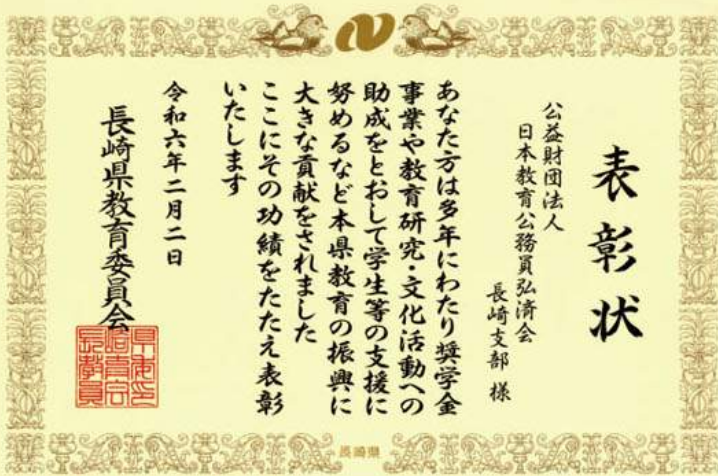 表彰状
公益財団法人
日本教育公務員弘済会
長崎支部 様
あなた方は多年にわたり奨学金
事業や教育研究・文化活動への
助成をとおして学生等の支援に
努めるなど本県教育の振興に
大きな貢献をされました
ここにその功績をたたえ表彰
いたします
令和六年二月二日
長崎県教育委員会
長崎県